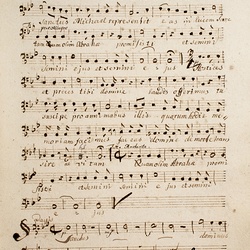 sanctus Michael repraesentet eas in lucem San
tam Quam olim Abrahae promisisti et semini
semini ejus et semini ejus Hostias
et preces tibi domine laudis offerimus tu
suscipe pro animabus illis quarum hodie me
moriam facimus fac eas domine de morte trans
ire ad vitam Quam olim Abrahae promi
sisti et semini semini ejus et semini
ejus
Sanctus dominus